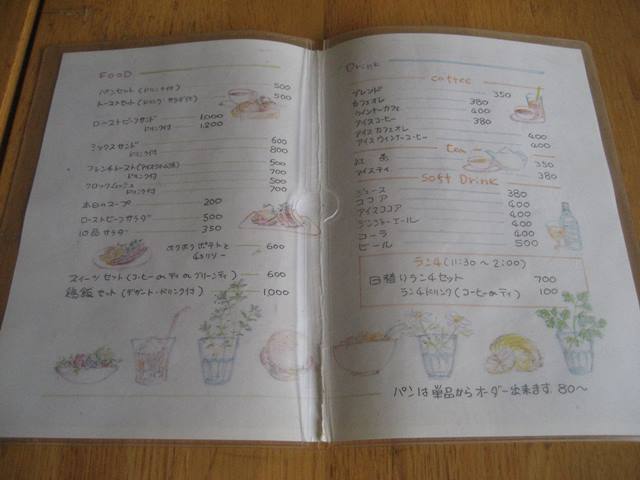 FOOD
パンセット(ドリンク付) 500
トーストセット(ドリンク・サラダ付) 500
ローストビーフサンド 1,000
ドリンク付 1,200
ミックスサンド 600
ドリンク付 800
フレンチトースト(アイスクリーム添) 500
ドリンク付 700
クロックムッシュ 500
ドリンク付 700
本日のスープ 200
ローストビーフサラダ 500
10品サラダ 350
ホクホクポテトと 600
スイーツセット(コーヒー or ティ or グリーンティ) 600
鶏飯セット(デザート・ドリンク付) 1,000
Drink
coffee
ブレンド 350
カフェオレ 380
ウィンナーカフェ 400
アイスコーヒー 380
アイスカフェオレ 400
アイスウィンナーコーヒー 400
tea
紅茶 350
アイスティ 350
soft Drink
ジュース 380
ココア 400
アイスココア 400
ジンジャーエール 400
コーラ 400
ビール 500
ランチ(11:30〜2:00)
日替りランチセット 700
ランチドリンク(コーヒー or ティ) 100
パンは単品からオーダー出来ます. 80〜